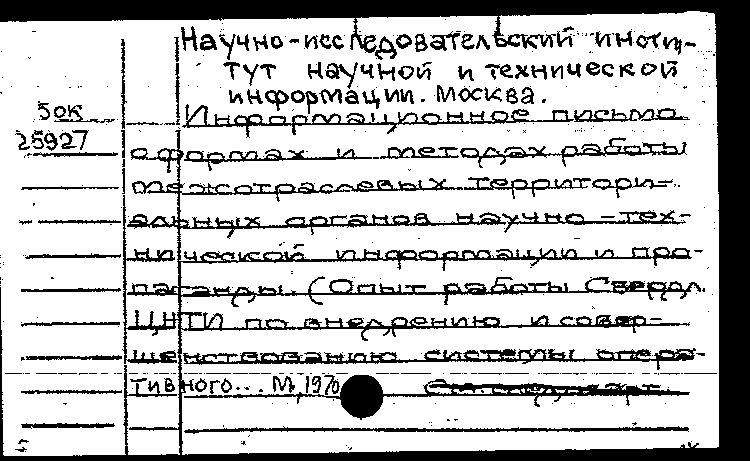 Научно-исследовательский инсти-
тут научной и технической
информации. Москва.
50К
25927
Информационное письмо
о формах и методах работы
межотраслевых территори-
альных органов научно-тех-
нической информации и про-
паганды. (Опыт работы Свердл.
ЦНТИ по внедрению и совер-
шенствованию системы опера-
тивного... М, 1970
См. след. карт.